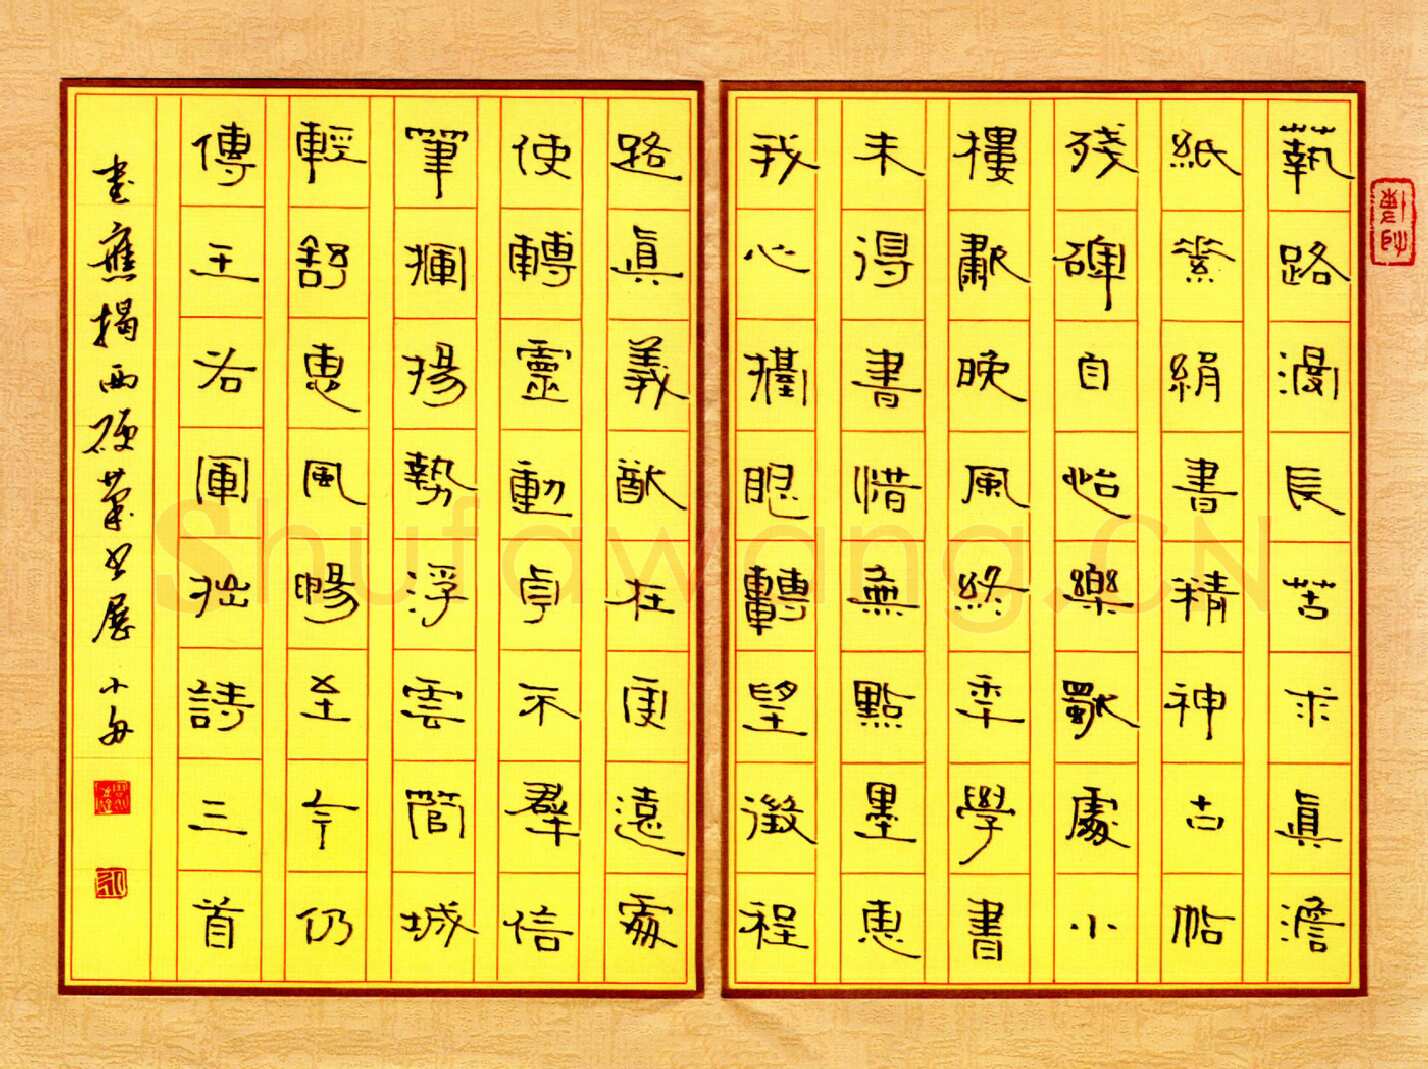 藝路漫長苦求眞澹
紙素絹書精神古帖
殘碑自怡樂處小
樓肅晚風終年學書
未得書惜無點墨惠
我心擡眼轉望徵程
路眞義猷在更遠處
使轉靈動卓不羣信
筆揮揚勢浮雲管城
輕舒惠風暢至今仍
傳王右軍拙詩三首
書應揭西硬筆書展 小舟
Shufawang.CN